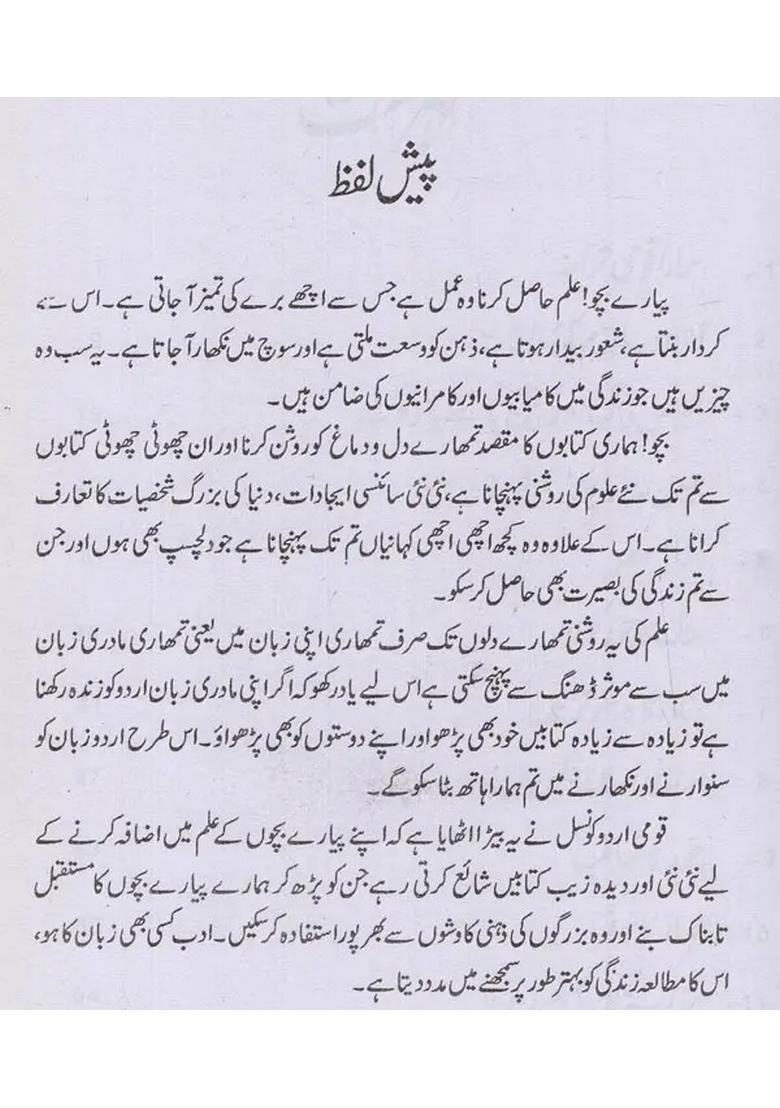 پیش لفظ
پیارے بچو! علم حاصل کرنا وہ عمل ہے جس سے اچھے برے کی تمیز آ جاتی ہے۔ اس سے
کردار بنتا ہے، شعور بیدار ہوتا ہے، ذہن کو وسعت ملتی ہے اور سوچ میں نکھار آ جاتا ہے۔ یہ سب وہ
چیزیں ہیں جو زندگی میں کامیابیوں اور کامرانیوں کی ضامن ہیں۔
بچو! ہماری کتابوں کا مقصد تمھارے دل و دماغ کو روشن کرنا اور ان چھوٹی چھوٹی کتابوں
سے تم تک نئے علوم کی روشنی پہنچانا ہے، نئی نئی سائنسی ایجادات، دنیا کی بزرگ شخصیات کا تعارف
کرانا ہے۔ اس کے علاوہ وہ کچھ اچھی اچھی کہانیاں تم تک پہنچانا ہے جو دلچسپ بھی ہوں اور جن
سے تم زندگی کی بصیرت بھی حاصل کر سکو۔
علم کی یہ روشنی تمھارے دلوں تک صرف تمھاری اپنی زبان میں یعنی تمھاری مادری زبان
میں سب سے موثر ڈھنگ سے پہنچ سکتی ہے اس لیے یاد رکھو کہ اگر اپنی مادری زبان اردو کو زندہ رکھنا
ہے تو زیادہ سے زیادہ کتابیں خود بھی پڑھو اور اپنے دوستوں کو بھی پڑھواؤ۔ اس طرح اردو زبان کو
سنوارنے اور نکھارنے میں تم ہمارا ہاتھ بٹا سکو گے۔
قومی اردو کونسل نے یہ بیڑا اٹھایا ہے کہ اپنے پیارے بچوں کے علم میں اضافہ کرنے کے
لیے نئی نئی اور دیدہ زیب کتابیں شائع کرتی رہے جن کو پڑھ کر ہمارے پیارے بچوں کا مستقبل
تابناک بنے اور وہ بزرگوں کی ذہنی کاوشوں سے بھرپور استفادہ کر سکیں۔ ادب کسی بھی زبان کا ہو،
اس کا مطالعہ زندگی کو بہتر طور پر سمجھنے میں مدد دیتا ہے۔